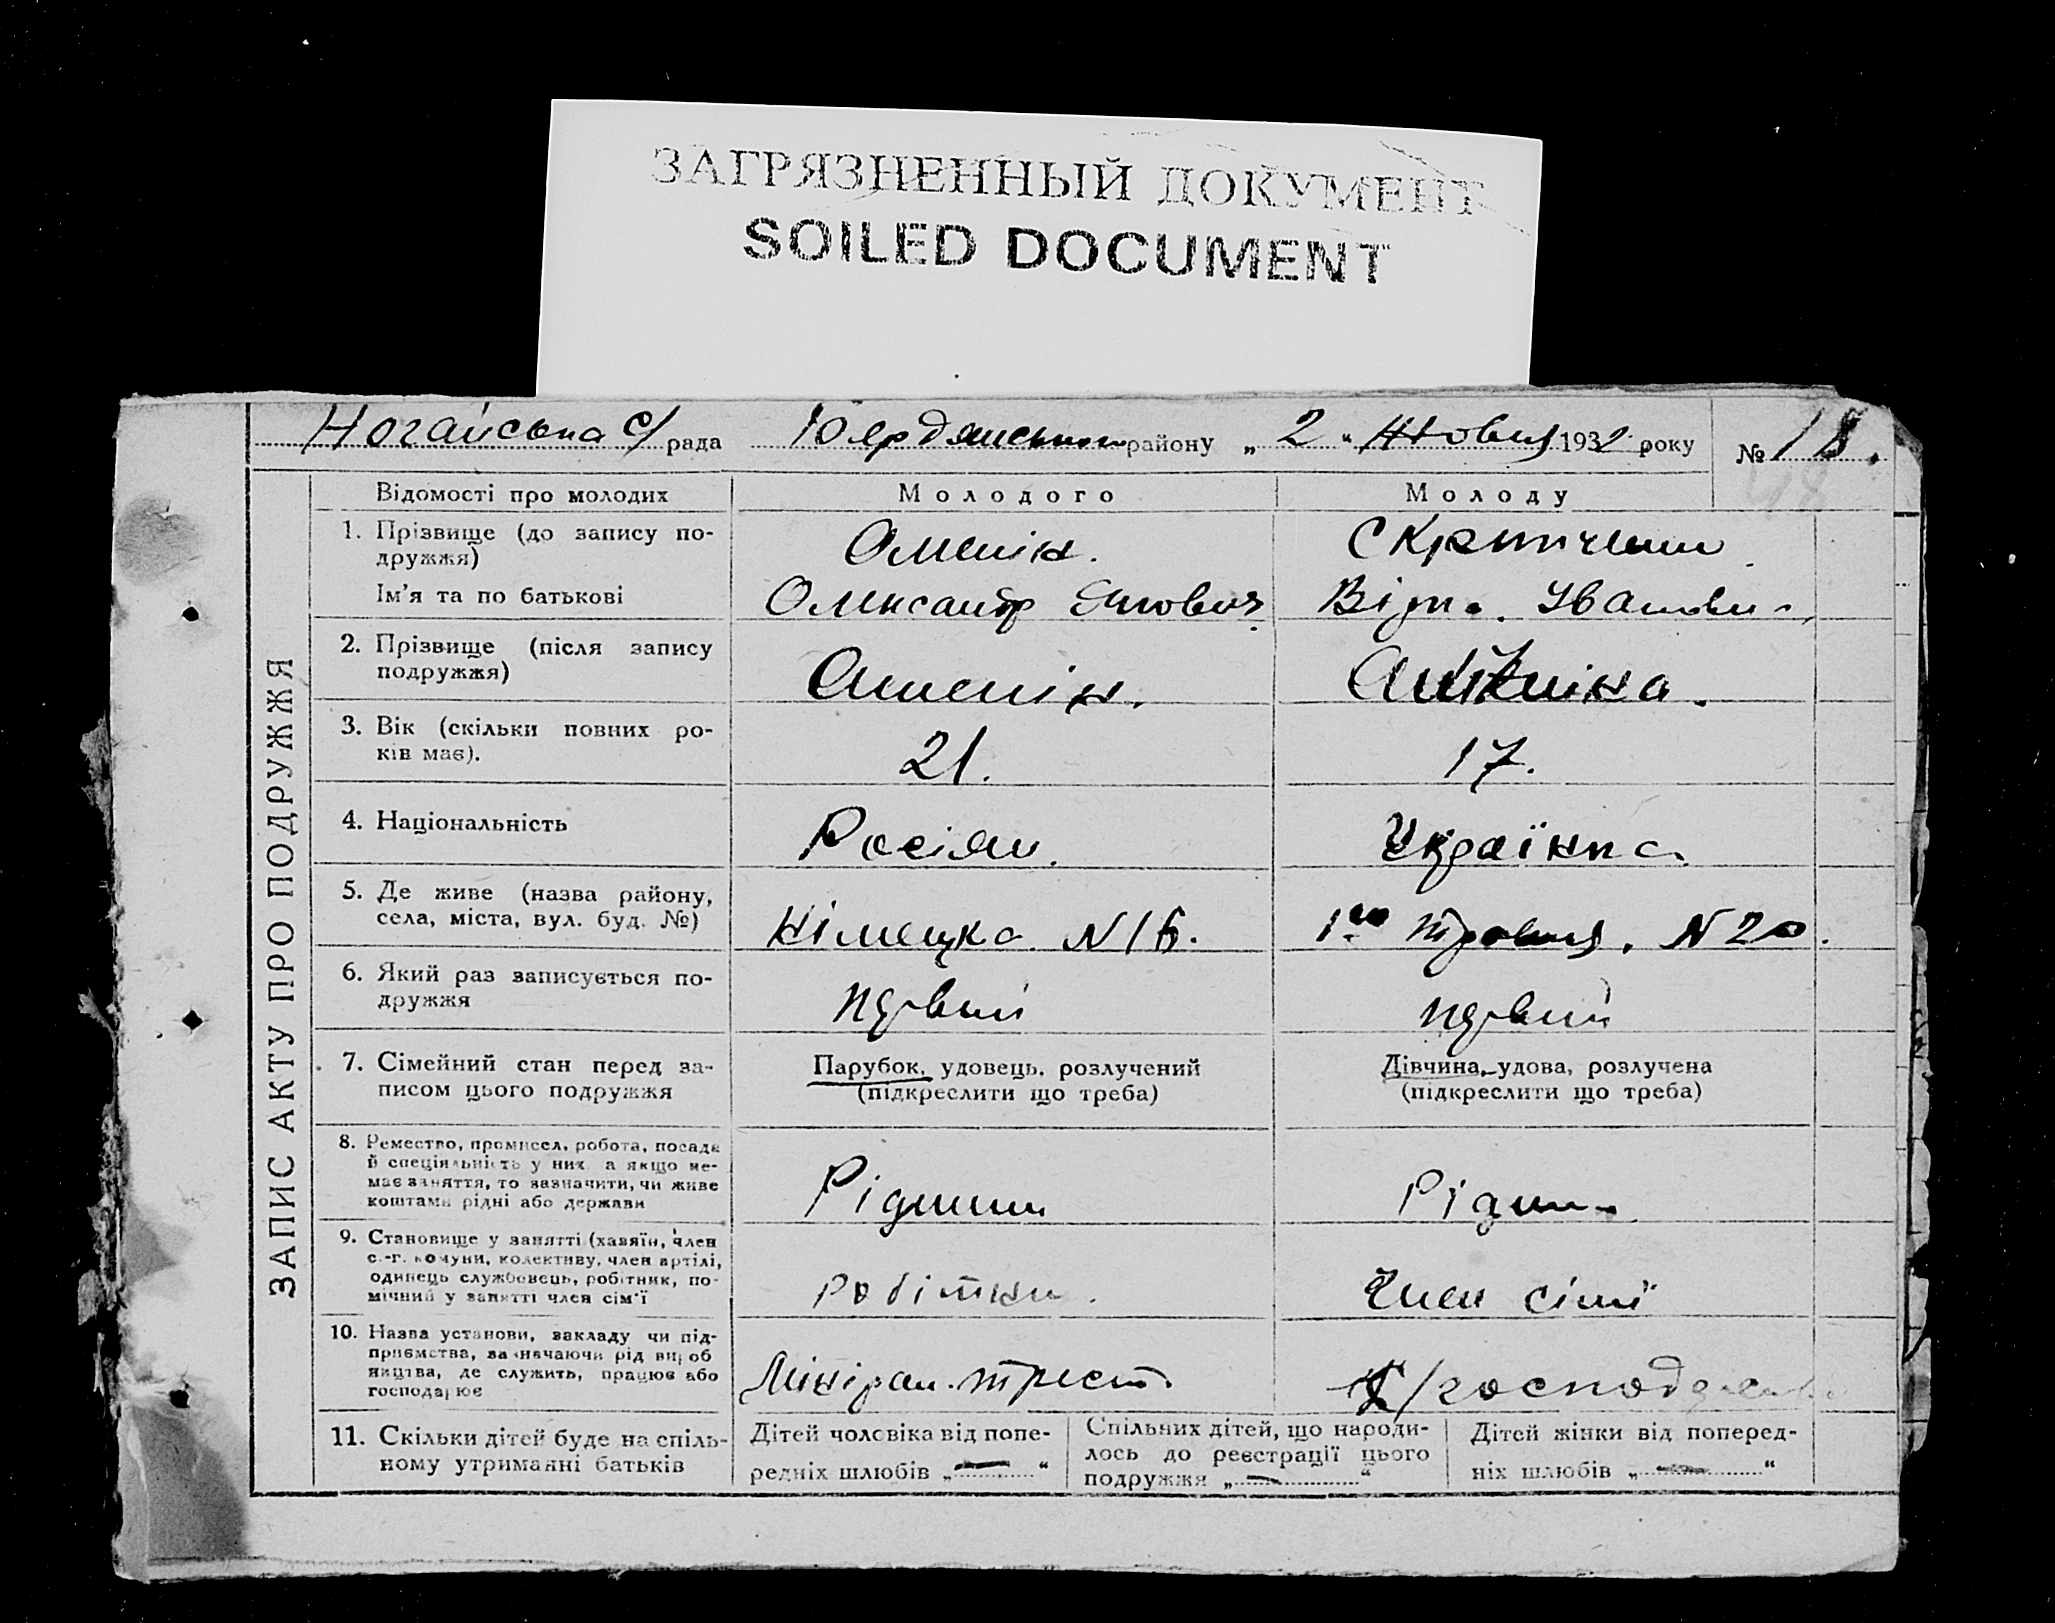 ЗАГРЯЗНЕННЫЙ ДОКУМЕНТ
SOILED DOCUMENT
Ногайська с/рада району „ 2 “ Жовтня 1932 року № 18.
ЗАПИС АКТУ ПРО ПОДРУЖЖЯ
Відомості про молодих Молодого Молоду
1. Прізвище (до запису по-
дружжя)
Ім'я та по батькові Олександр
2. Прізвище (після запису
подружжя)
3. Вік (скільки повних ро-
ків має). 21. 17.
4. Національність Росіян. Українка
5. Де живе (назва району,
села, міста, вул. буд. №) Німецка N 16. 1го травня, N 20.
6. Який раз записується по-
дружжя первий первий
7. Сімейний стан перед за-
писом цього подружжя
Парубок, удовець, розлучений
(підкреслити що треба)
Дівчина, удова, розлучена
(підкреслити що треба)
8. Ремество, промисел, робота, посада
й спеціяльність у них, а якщо не-
має заняття, то зазначити, чи живе
коштами рідні або держави
9. Становище у занятті (хазяїн, член
с.-г. комуни, колективу, член артілі,
одинець службовець, робітник, по-
мічний у занятті член сім'ї
Член сімї
10. Назва установи, закладу чи під-
приємства, зазначаючи рід вироб
ництва, де служить, працює або
господарює
трест.
11. Скільки дітей буде на спіль-
ному утриманні батьків
Дітей чоловіка від попе-
редніх шлюбів „ — “
Спільних дітей, що народи-
лось до реєстрації цього
подружжя „ — “
Дітей жінки від поперед-
ніх шлюбів „ — “